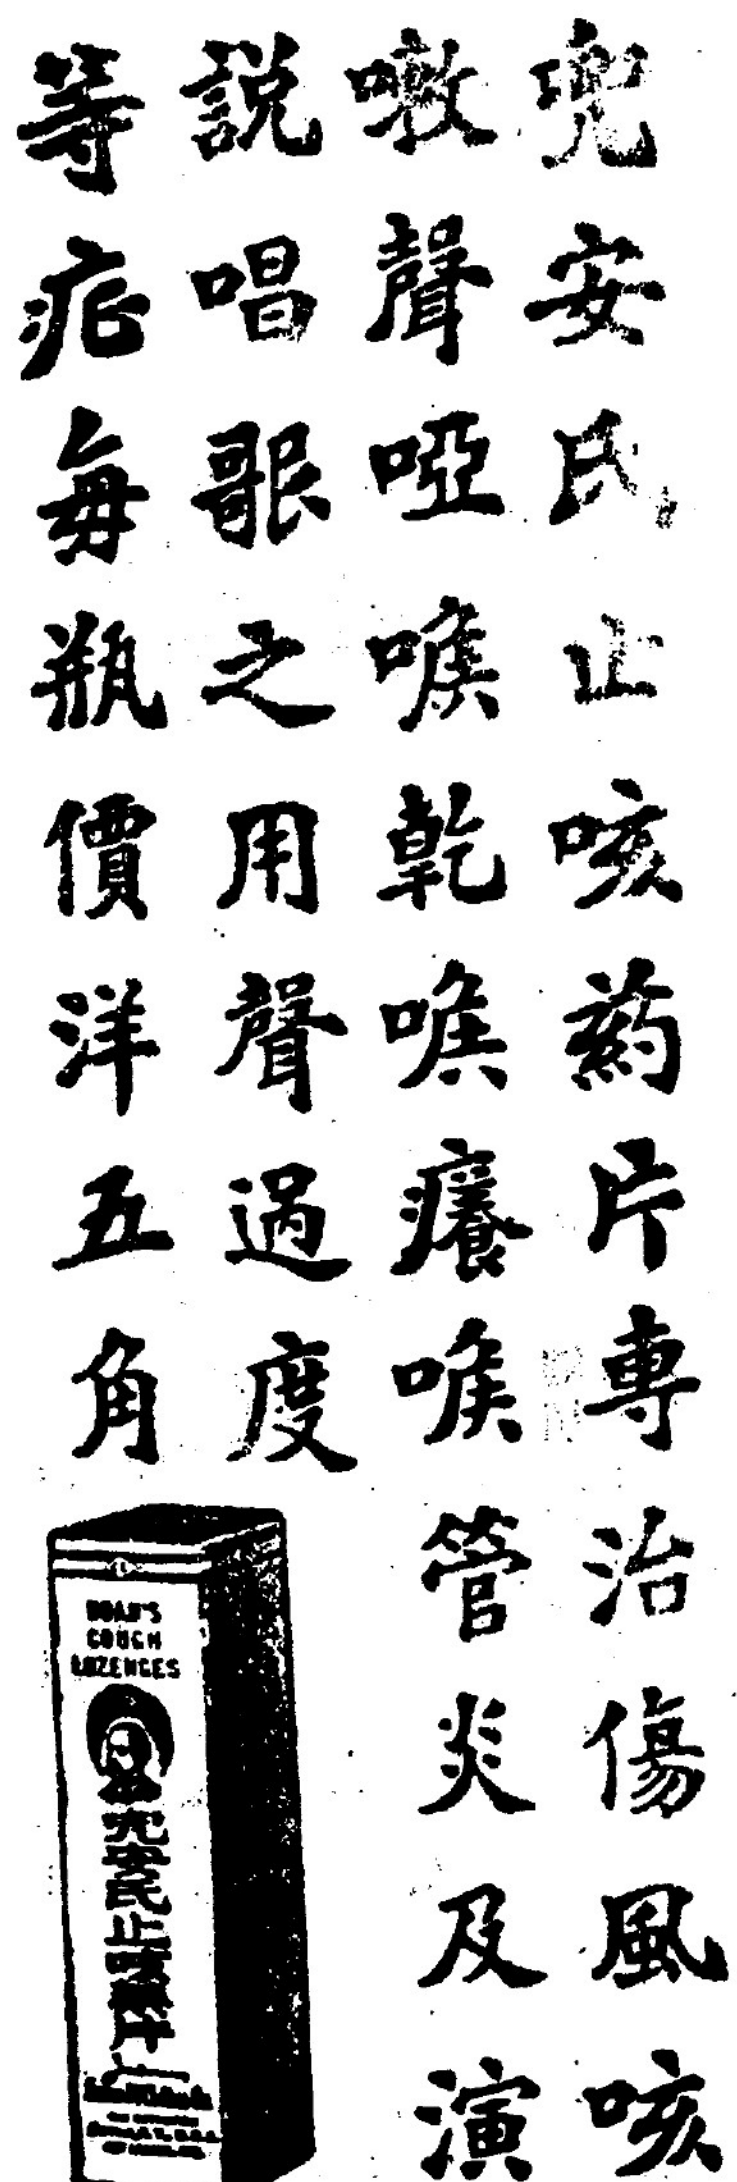 兜安氏止咳药片專治傷風咳
嗽聲啞喉乾喉癢喉管炎及演
説唱歌之用聲過度
等症每瓶價洋五角
DOAN'S
COUGH
LOZENGES
兜安氏止咳藥片